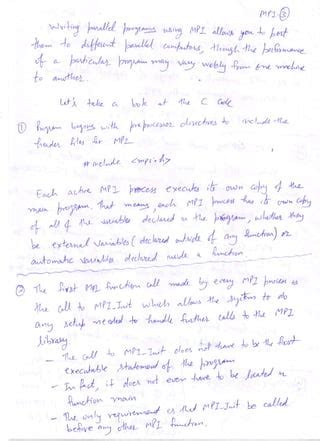 MPI ③
Writing parallel programs using MPI allows you to port
them to different parallel computers, though the performance
of a particular program may vary widely from one machine
to another.
Let's take a look at the C Code
① Program begins with preprocessor directives to include the
header files for MPI
#include <mpi.h>
Each active MPI process executes its own copy of the
main program. that means each MPI process has its own copy
of all of the variables declared in the program, whether they
be external variables (declared outside of any function) or
automatic variables declared inside a function
② The first MPI function call made by every MPI process is
the call to MPI_Init which allows the system to do
any setup needed to handle further calls to the MPI
library
- The call to MPI_Init does not have to be the first
executable statement of the program
- In fact, it does not even have to be located in
function main
- The only requirement is that MPI_Init be called
before any other MPI function.